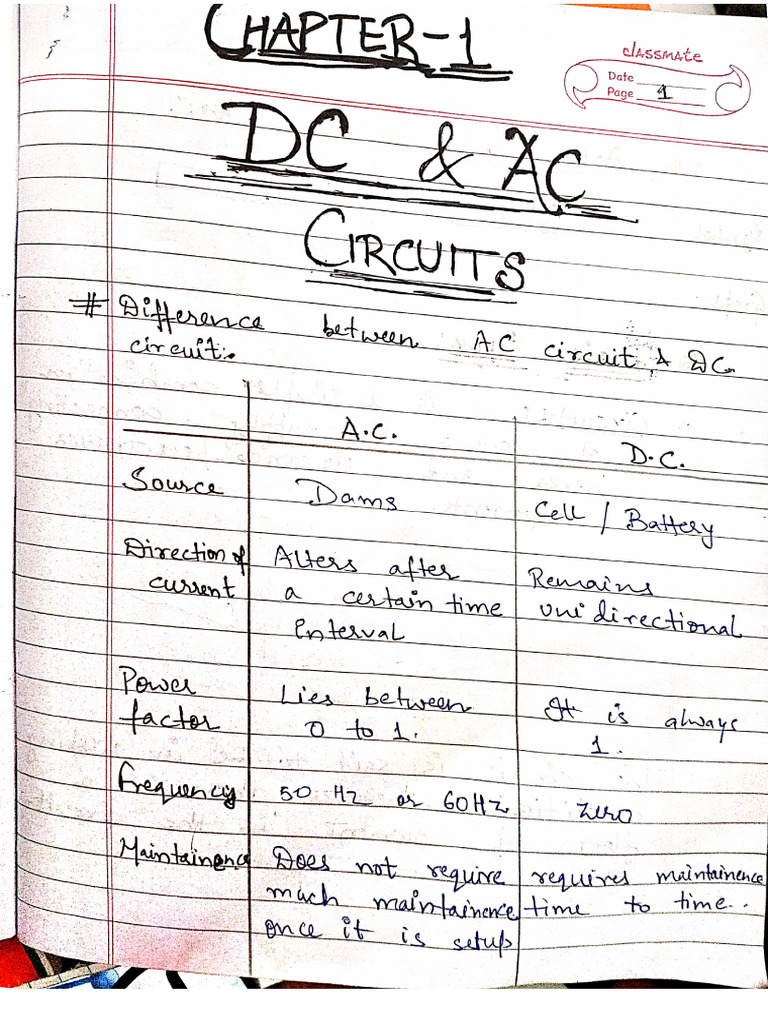 CHAPTER-1
classmate
Date
Page 1
DC & AC
CIRCUITS
# Difference between AC circuit & DC
circuit:-
A.C. D.C.
Source Dams Cell / Battery
Direction of Alters after Remains
current a certain time unidirectional
interval
Power Lies between It is always
factor 0 to 1. 1.
Frequency 50 Hz or 60Hz zero
Maintainence Does not require requires maintainence
much maintainence time to time..
once it is setup